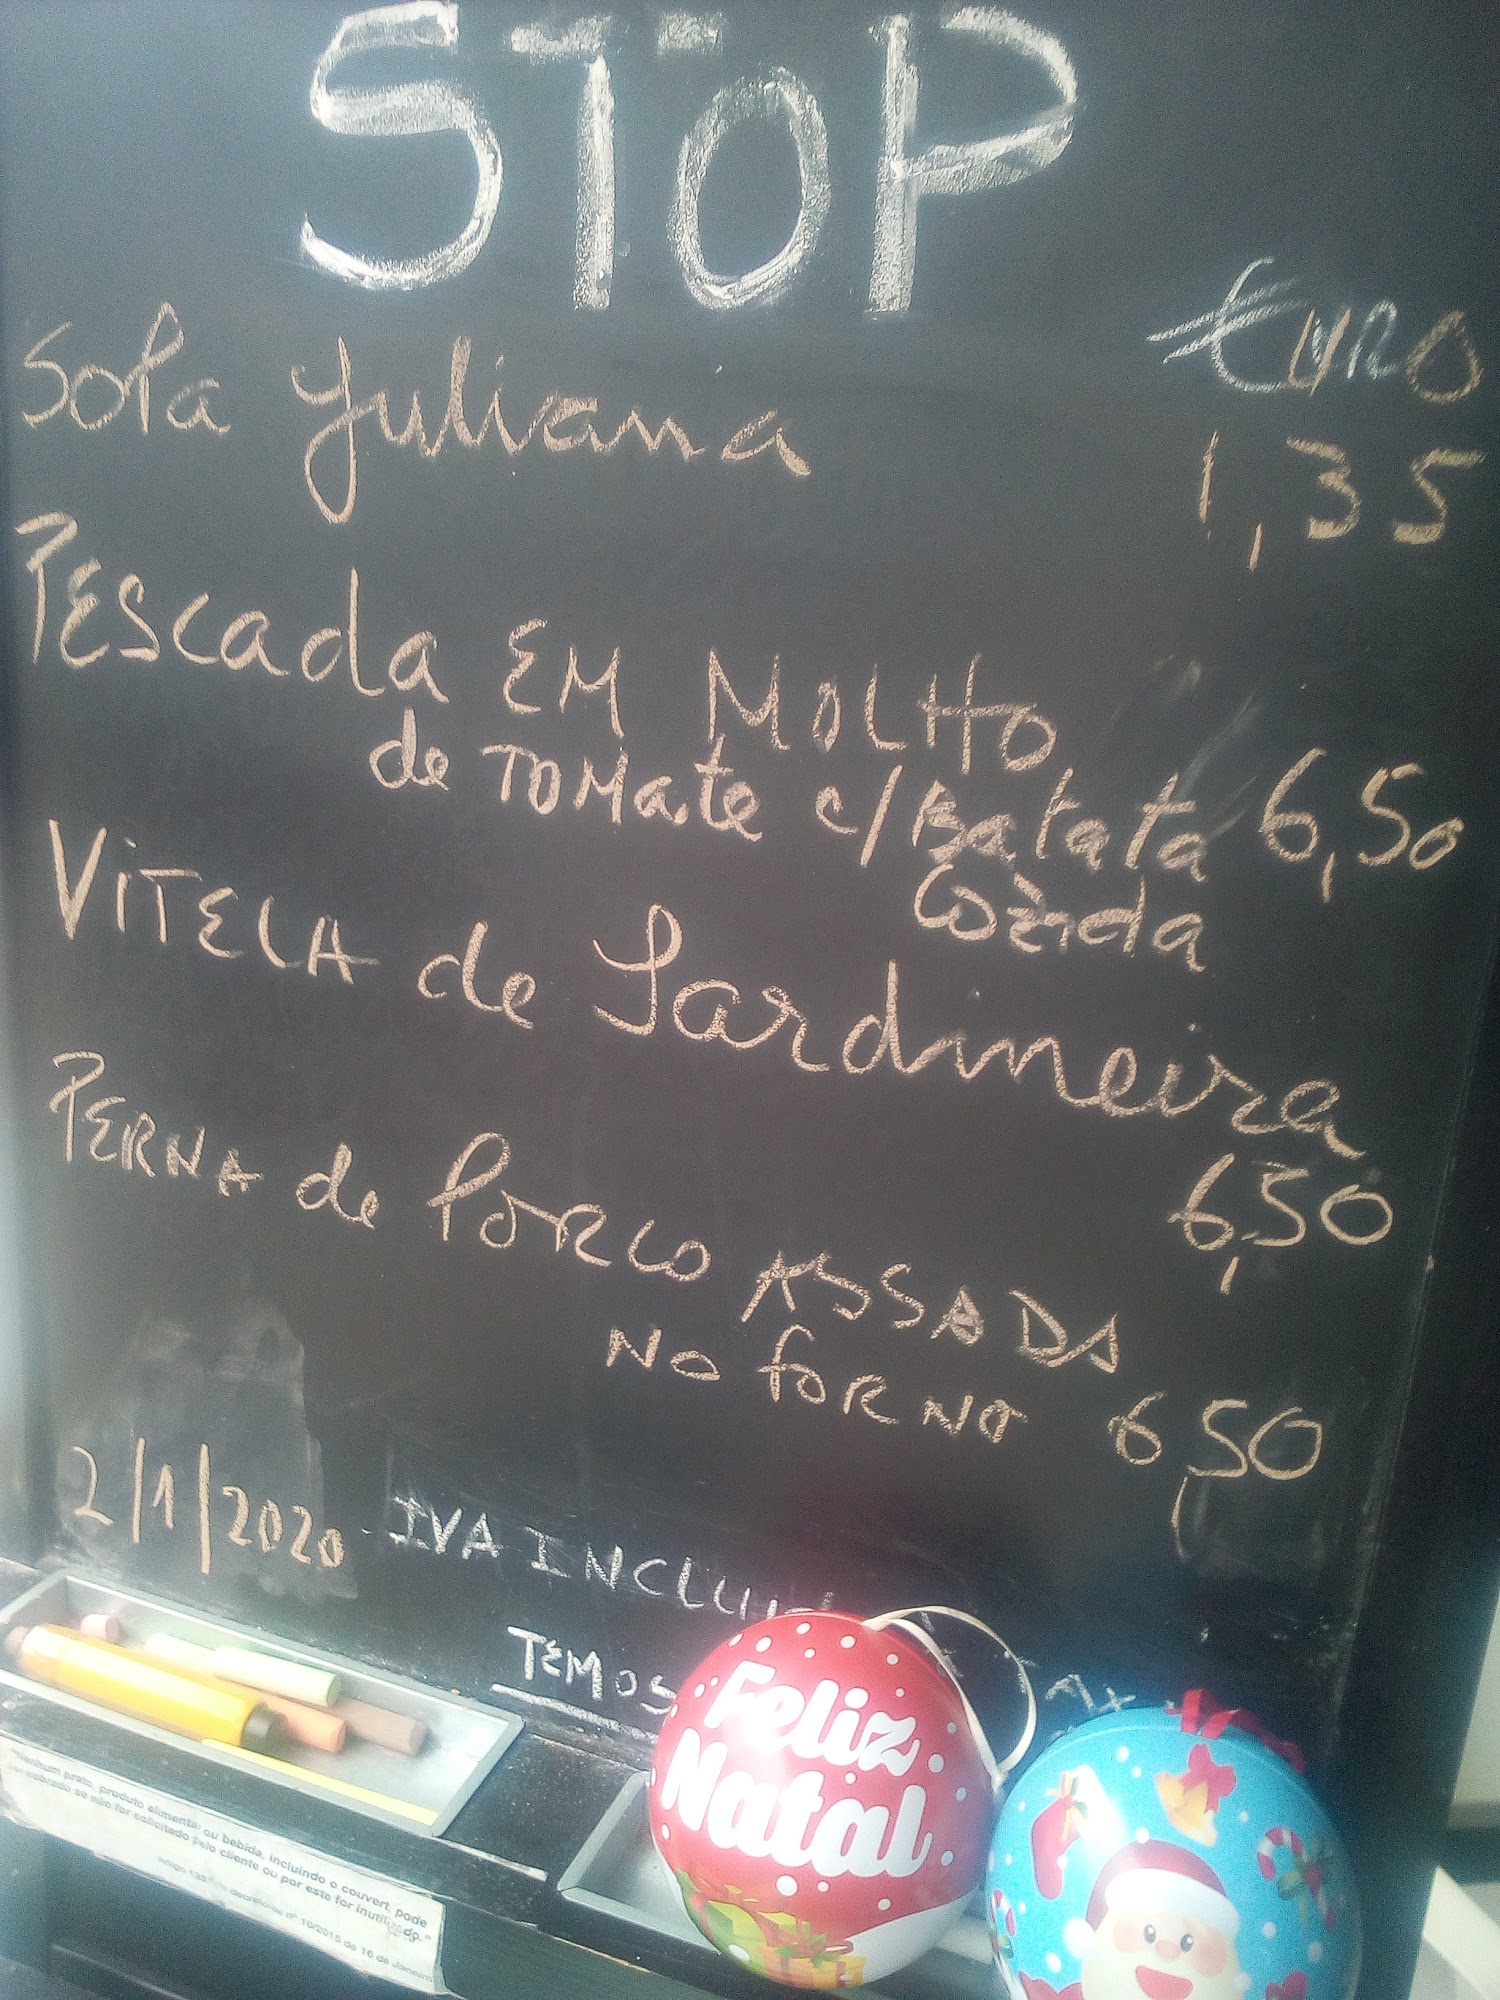 STOP
€URO
SOPa Juliana 1,35
PESCada EM MOLHO
de TOMate c/ Batata 6,50
Cozida
ViTELA de Jardineira
6,50
PERNA de PORCO ASSADA
NO FORNO 6,50
2/1/2020 IVA INCLUI
TEMOS
Feliz
Natal
"Nenhum prato, produto alimentar ou bebida, incluindo o couvert, pode
ser cobrado se não for solicitado pelo cliente ou por este for inutilizado."
Artigo 135 nº 10/2015 de 16 de Janeiro